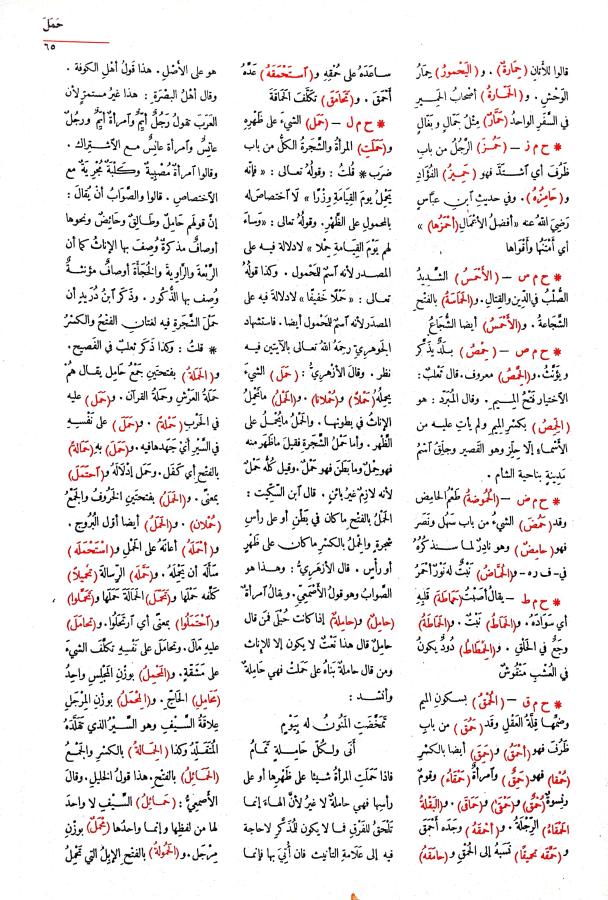 حَمَلَ
٦٥
قالوا للأتان (حِمارَةٌ) . و(اليَحْمورُ) حِمارُ
الوَحْشِ . و(الحَمَّارةُ) أصحابُ الحَميرِ
في السَّفَر الواحدُ (حَمَّارٌ) مثلُ جَمَّالٍ وبَغَّالٍ
* ح م ز – (حَمُزَ) الرَّجُلُ من بابِ
ظَرُفَ أي اشتدَّ فهو (حَمِيزُ) الفُؤَادِ
و(حامِزُهُ) . وفي حديثِ ابنِ عبَّاسٍ
رَضيَ اللهُ عنه «أفضلُ الأعْمَالِ (أَحْمَزُها) »
أي أَمْتَنُها وأَقْواها
* ح م س – (الأَحْمَسُ) الشَّدِيدُ
الصُّلْبُ في الدِّينِ والقِتالِ . و(الحَمَاسَةُ) بالفتح
الشَّجاعةُ . و(الأَحْمَسُ) أيضا الشُّجاعُ
* ح م ص – (حِمْصُ) بلَدٌ يذَكَّر
ويؤنَّثُ . و(الحِمَّصُ) معروف . قال ثعلبٌ :
الاختيار فتْحُ المــيم . وقال المُبَرِّد : هو
(الحِمِّصُ) بكسرِ الميم ولم يأتِ عليه من
الأسْماء إلَّا حِلِّزٌ وهو القصير وجِلِّقٌ اسمُ
مَدينةٍ بناحية الشام .
* ح م ض – (الحُموضةُ) طَعْمُ الحامِض
وقد (حَمُضَ) الشيءُ من باب سَهُلَ ونَصَر
فهو (حامِضٌ) وهو نادِرٌ لما ســنذكرُهُ
في – ف ره – و(الحُمَّاضُ) نَبْتٌ له نَوْرٌ أحمرُ
* ح م ط – يقالُ أصَبْتُ (حَمَاطَةَ) قَلْبِهِ
أي سَوادَهُ . و(الحَمَاطُ) نَبْتٌ . و(الحَمَاطَةُ)
وجَعٌ في الحَلْقِ . و(الحَمْطَاطُ) دُودٌ يكونُ
في العُشْبِ مَنْقُوشٌ
* ح م ق – (الحُمْقُ) بسكونِ الميمِ
وضمِّها قِلَّةُ العَقْلِ وقد (حَمُقَ) من بابِ
ظَرُفَ فهو (أحْمَقُ) و(حَمِقَ) أيضا بالكسْرِ
(حُمْقا) فهو (حَمِقٌ) وامرأةٌ (حَمْقَاءُ) وقومٌ
ونِسوةٌ (حُمْقٌ) و(حَمْقَى) و(حَمَاقَى) . و(البَقْلَةُ
الحَمْقَاءُ) الرِّجْلَةُ . و(أَحْمَقَهُ) وجَدَه أَحْمَقَ
و(حَمَّقَه تحميقًا) نَسَبَهُ إلى الحُمْقِ و(حامَقَهُ)
ساعَدَهُ على حُمْقِهِ و(اسْتَحْمَقَهُ) عدَّهُ
أَحْمَقَ . و(تَحَامَقَ) تكلَّفَ الحَمَاقةَ
* ح م ل – (حَمَلَ) الشيءَ على ظَهْرِهِ
و(حَمَلَتِ) المرأةُ والشَّجرةُ الكلُّ من بابِ
ضرَبَ * قُلتُ : وقولُهُ تعالى : « فإنَّه
يَحْمِلُ يومَ القِيامَةِ وِزْرًا » لا اختصاصَ له
بالمحمولِ على الظَّهْرِ . وقولُهُ تعالى : «وسَاءَ
لهم يَوْمَ القِيَــامةِ حِمْلا » لا دلالةَ فيه على
المصدَرِ لأنه اسمٌ للمَحْمول . وكذا قولُهُ
تعالى : « حَمَلَتْ حَمْلًا خَفيفًا » لا دلالةَ فيه على
المصدَرِ لأنه اسمٌ للمحْمول أيضا . فاستشهاد
الجَوهَرِيِّ رحِمَهُ اللهُ تعالى بالآيَتينِ فيه
نظَر . وقالَ الأزْهَريُّ : (حَمَلَ) الشيءَ
يَحمِلُهُ (حَمْلًا) و(حُمْلانًا) . و(الحَمْلُ) ما تَحْمِلُ
الإناثُ في بطونها . والحِمْلُ ما يُحْمَلُ على
الظَّهر . وأما حَمْلُ الشَّجرَةِ فقيلَ ما ظهَر منه
فهو حِمْلٌ وما بَطَنَ فهو حَمْلٌ . وقيلَ كلُّه حَمْلٌ
لأنه لازِمٌ غيرُ بائنٍ . قال ابنُ السِّكِّيتِ :
الحَمْلُ بالفتْح ما كان في بَطْنٍ أو على رأسِ
شَجرةٍ والحِمْلُ بالكسْرِ ما كان على ظَهْرٍ
أو رأسٍ . قال الأزهَرِيُّ : وهــذا هو
الصَّوابُ وهو قولُ الأصْمَعِيِّ . ويقالُ امرأةٌ
(حامِلٌ) و(حامِلةٌ) إذا كانت حُبْلَى فمَن قال
حامِلٌ قال هذا نَعْتٌ لا يكون إلا للإناث
ومن قال حامِلَةٌ بَناهُ على حَمَلَتْ فهي حامِلَةٌ
وأَنشــد :
تَمَخَّضَتِ المَنُونُ له بِيَوْمٍ
أَنَى ولــكُلِّ حامِــلةٍ تَمَــامُ
فاذا حَمَلَتِ المرأةُ شيئا على ظَهْرِها أو على
رأسِها فهي حامِلةٌ لا غيرُ لأنَّ الهاءَ إنما
تَلْحَقُ للفَرْقِ فما لا يكون للمُذَكَّرِ لا حاجةَ
فيه إلى عَلَامةِ التأنيثِ فان أُتِيَ بها فإنما
هو على الأصْلِ . هذا قولُ أهْلِ الكوفة .
وقال أهْلُ البصْرَةِ : هذا غيرُ مستمرٍّ لأن
العَرَبَ تقولُ رَجُلٌ أَيِّمٌ وامرأةٌ أَيِّمٌ ورجُلٌ
عانِسٌ وامرأةٌ عانِسٌ مع الاشتراكِ .
وقالوا امرأةٌ مُصْبِيَةٌ وكَلْبَةٌ مُجْرِيَةٌ مع
الاختصاصِ . قالوا والصَّوابُ أنْ يُقالَ :
إنَّ قولَهم حامِلٌ وطالِقٌ وحائِضٌ ونحوها
أوصافٌ مذكَّرةٌ وُصِفَ بها الإناثُ كما أنَّ
الرَّبْعةَ والرَّاوِيةَ والخُجَأةَ أوصافٌ مؤنَّثةٌ
وُصِف بها الذُّكور . وذَكَر ابنُ دُرَيدٍ أن
حَمْلَ الشجَرةِ فيه لغتان الفتْحُ والكسْرُ
* قلتُ : وكذا ذَكَر ثعلبٌ في الفَصيح .
و(الحَمَلَةُ) بفتحتينِ جَمْعُ حامِلٍ يقــال هُمْ
حَمَلَةُ العَرْشِ وحَمَلَةُ القرآنِ . و(حَمَلَ) عليه
في الحَرْبِ (حَمْلَةً) . و(حَمَلَ) على نَفْسِــهِ
في السَّيْرِ أي جَهدَها فيه . و(حَمَلَ) به (حَمَالَةً)
بالفتح أي كَفَلَ . وحَمَلَ إدْلَالَه و(احتَمَلَ)
بمعنًى . و(الحَمَلُ) بفتحتينِ الخَروفُ والجَمْعُ
(حُمْلان) . و(الحَمَلُ) أيضا أوّلُ البُروجِ .
و(أَحْمَلَهُ) أعانَهُ على الحَمْلِ و(اسْتَحْمَلَه)
سألَهُ أن يَحْمِلَهُ . و(حَمَّلَه) الرسالةَ (تَحْمِيلًا)
كلَّفه حَمْلَها و(تَحَمَّلَ) الحَمَالةَ حمَلَها و(تَحَمَّلُوا)
و(احْتَمَلُوا) بمعنًى أي ارتَحَلُوا . و(تحامَلَ)
عليه مَالَ . وتحامَلَ على نَفْسِه تكلَّفَ الشيءَ
على مَشَقَّةٍ . و(المَحْمِلُ) بوزْنِ المَجْلِسِ واحِدُ
(مَحَامِلِ) الحَاجِّ . و(المِحْمَلُ) بوزن المِرْجَلِ
عِلَاقةُ السَّيْفِ وهو السَّيْرُ الذي تَقَلَّدَهُ
المُتَقَلِّدُ وكذا (الحِمَالةُ) بالكسْرِ والجَمْعُ
(الحَمَائلُ) بالفتح . هذا قولُ الخليلِ . وقالَ
الأَصمعِيُّ : (حَمَائلُ) السَّيْفِ لا واحدَ
لها من لفظها وإنما واحدُها (مِحْمَلٌ) بوزْنِ
مِرْجَل . و(الحَمُولَةُ) بالفتح الإبِلُ التي تَحْمِلُ